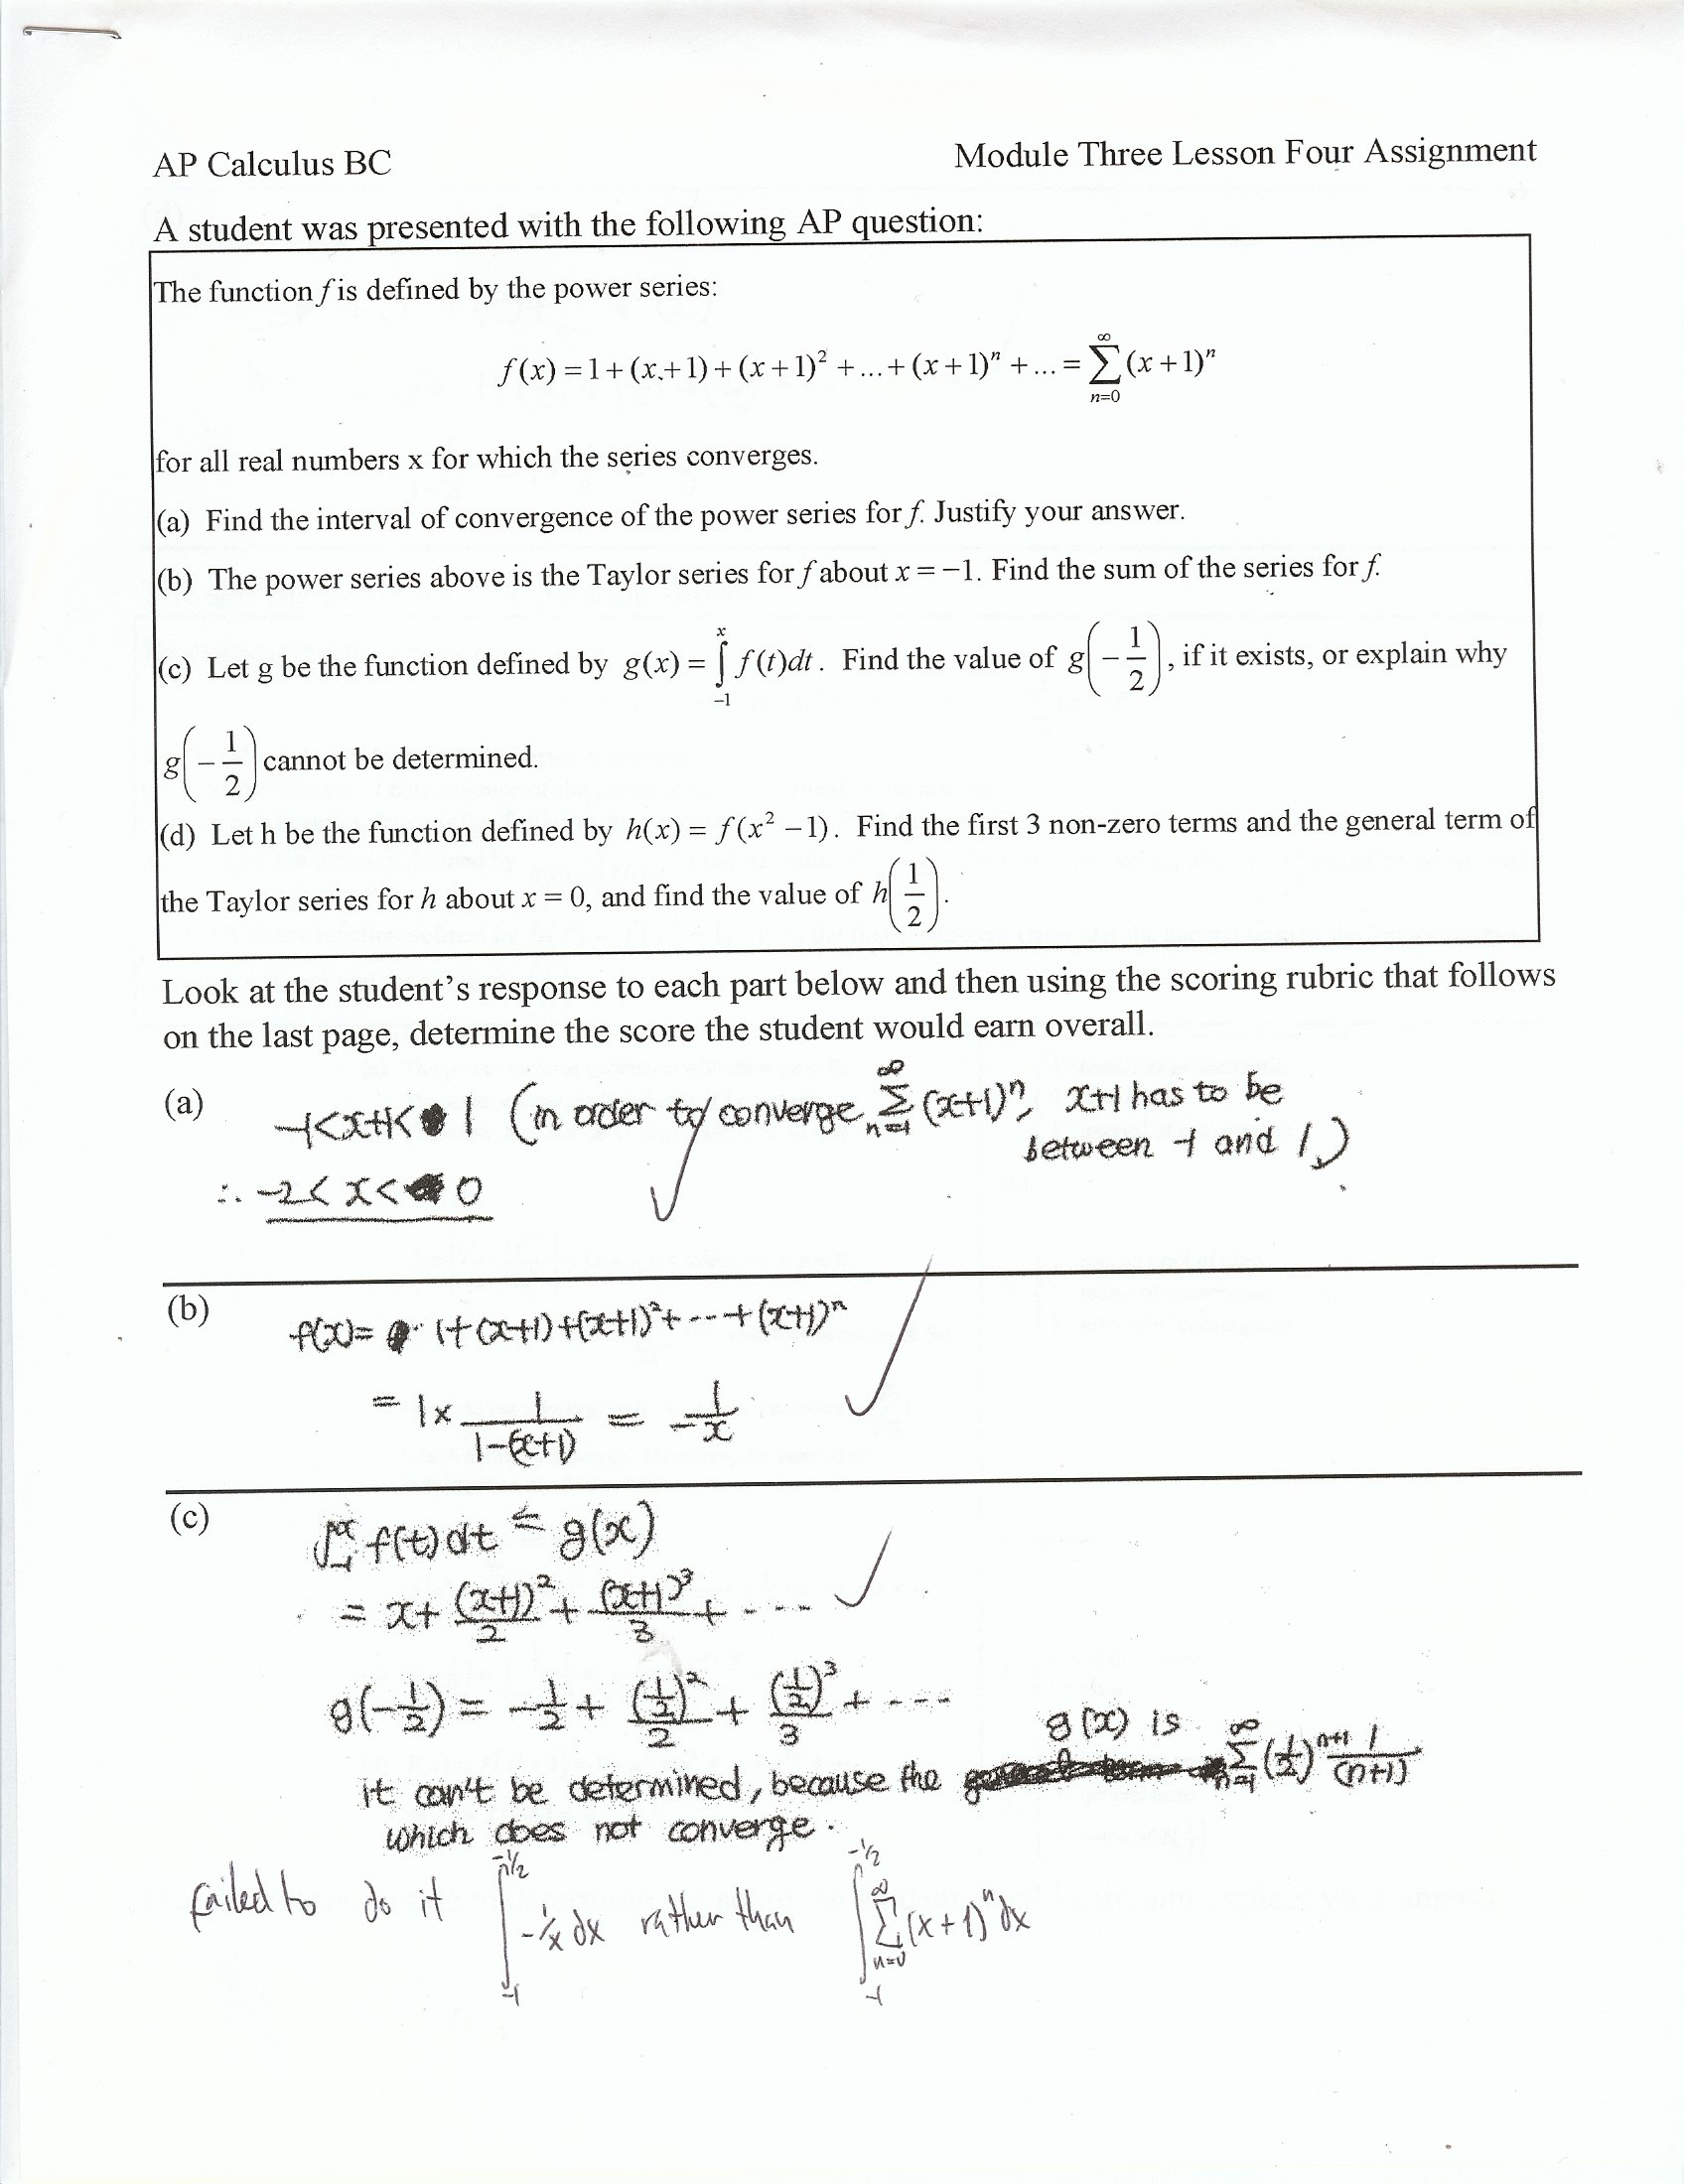 AP Calculus BC Module Three Lesson Four Assignment
A student was presented with the following AP question:
The function f is defined by the power series:
f(x) = 1 + (x+1) + (x+1)² + ... + (x+1)ⁿ + ... = ∑_{n=0}^{∞} (x+1)ⁿ
for all real numbers x for which the series converges.
(a) Find the interval of convergence of the power series for f. Justify your answer.
(b) The power series above is the Taylor series for f about x = −1. Find the sum of the series for f.
(c) Let g be the function defined by g(x) = ∫_{−1}^{x} f(t)dt. Find the value of g(−1/2), if it exists, or explain why
g(−1/2) cannot be determined.
(d) Let h be the function defined by h(x) = f(x² −1). Find the first 3 non-zero terms and the general term of
the Taylor series for h about x = 0, and find the value of h(1/2).
Look at the student's response to each part below and then using the scoring rubric that follows
on the last page, determine the score the student would earn overall.
(a) -1<x+1< 1 (in order to converge ∑_{n=1}^{∞} (x+1)ⁿ, x+1 has to be
between -1 and 1.)
∴ -2 < x < 0
(b) f(x)= 1+(x+1)+(x+1)²+---+(x+1)ⁿ
= 1× 1/(1-(x+1)) = -1/x
(c) ∫_{-1}^{x} f(t)dt = g(x)
= x + (x+1)²/2 + (x+1)³/3 + ----
g(-1/2) = -1/2 + (1/2)²/2 + (1/2)³/3 + ----
it can't be determined, because the g(x) is ∑_{n=1}^{∞} (1/2)ⁿ⁺¹ 1/(n+1)
which does not converge.
failed to do it ∫_{-1}^{-1/2} -1/x dx rather than ∫_{-1}^{-1/2} ∑_{n=0}^{∞} (x+1)ⁿ dx